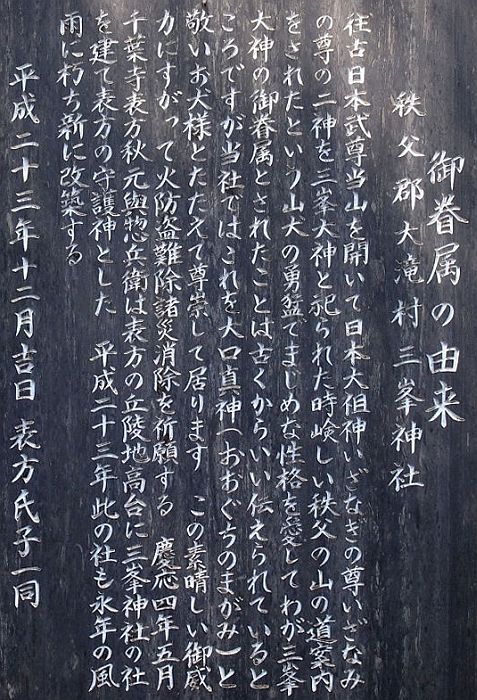 御眷属の由来
秩父郡大滝村三峯神社
往古日本武尊当山を開いて日本大伹神いざなきの尊いざなみ
の尊の二神を三峯大神と祀られた時峻しい秩父の山の道案内
をされたという山犬の勇猛でまじめな性格を愛してわが三峯
大神の御眷属とされたことは古くからいい伝えられていると
ころですが当社ではこれを大口真神(おおぐちのまがみ)と
敬いお犬様とたたえて尊崇して居ります この素晴しい御威
力にすがって火防盗難除諸災消除を祈願する 慶応四年五月
千葉寺表方秋元與惣兵衛は表方の丘陵地高台に三峯神社の社
を建て表方の守護神とした 平成二十三年此の社も永年の風
雨に朽ち新に改築する
平成二十三年十二月吉日 表方氏子一同